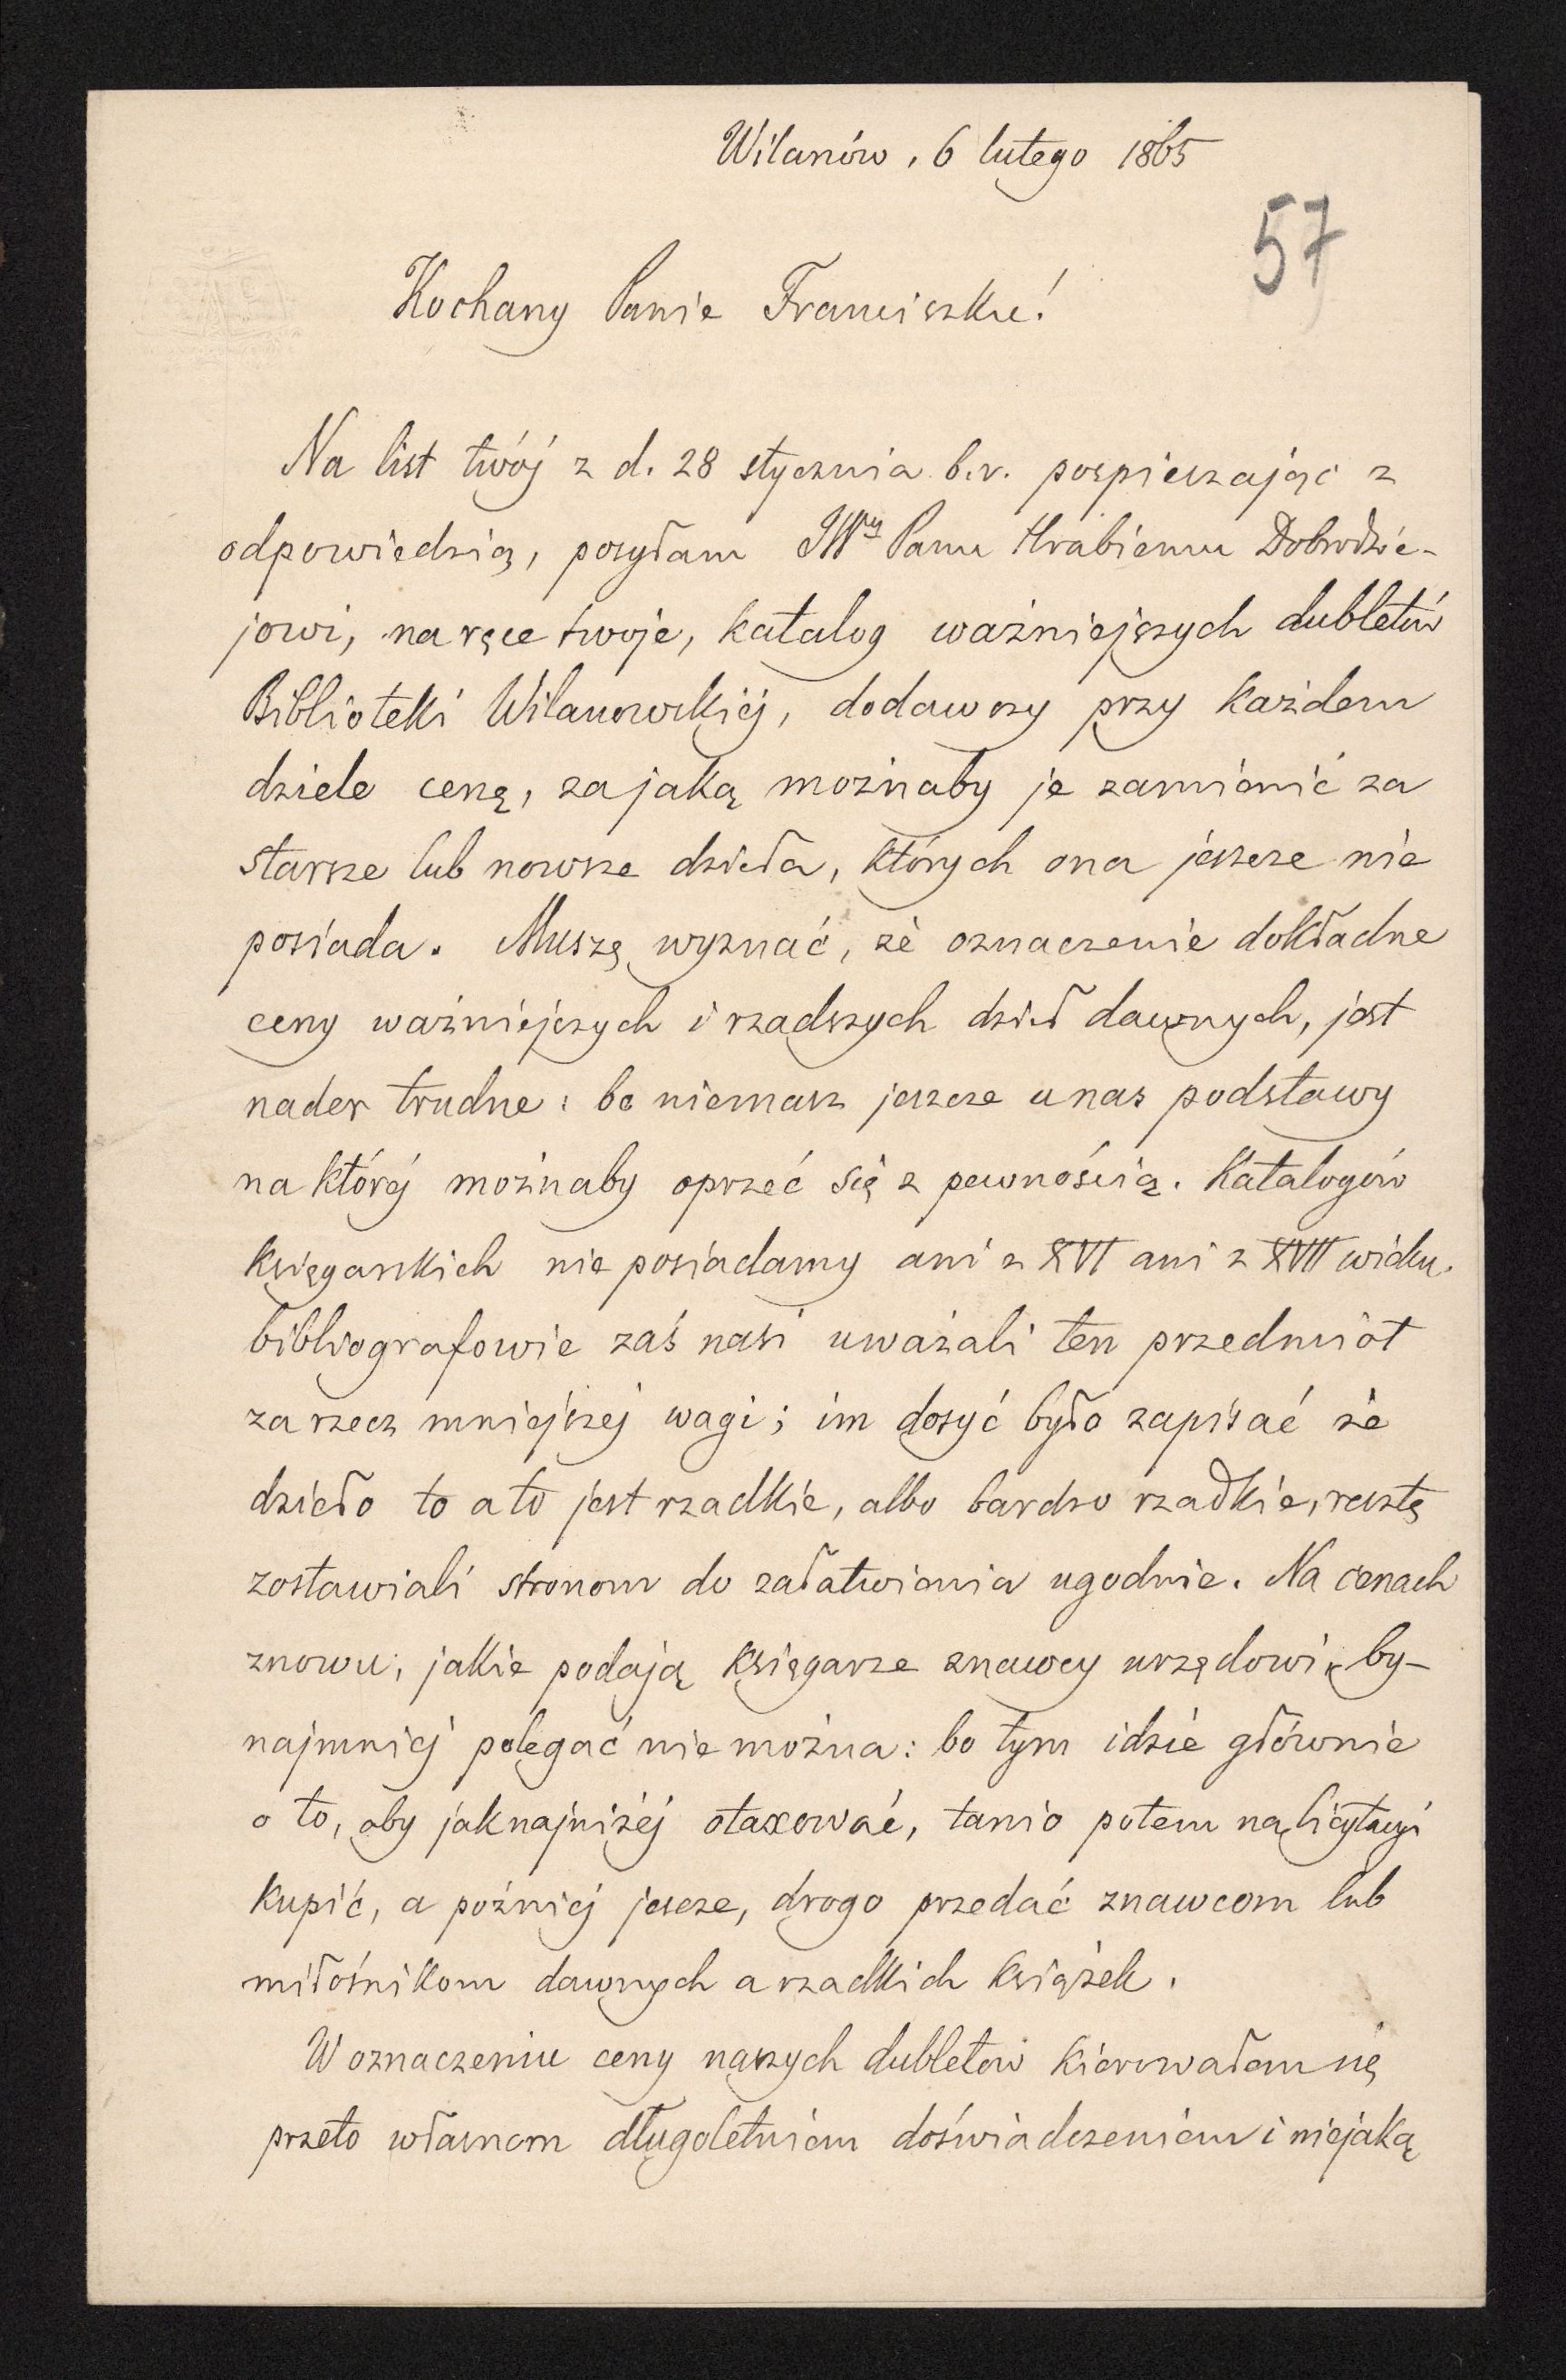 Wilanów, 6 lutego 1865
57
Kochany Panie Franciszku!
Na list twój z d. 28 stycznia b.r. pospieszając z
odpowiedzią, posyłam JWmu Panu Hrabiemu Dobrodzie-
jowi, na ręce twoje, katalog ważniejszych dubletów
Biblioteki Wilanowskiéj, dodawszy przy każdem
dziele cenę, za jaką możnaby je zamienić za
starsze lub nowsze dzieła, których ona jeszcze nie
posiada. Muszę wyznać, że oznaczenie dokładne
ceny ważniejszych i rzadszych dzieł dawnych, jest
nader trudne: bo niemasz jeszcze u nas podstawy
na któréj możnaby oprzeć się z pewnością. Katalogów
księgarskich nie posiadamy ani z XVI ani z XVII wieku.
bibliografowie zaś nasi uważali ten przedmiot
za rzecz mniejszéj wagi; im dosyć było zapisać że
dzieło to a to jest rzadkie, albo bardzo rzadkie, resztę
zostawiali stronom do załatwienia ugodnie. Na cenach
znowu, jakie podają księgarze znawcy urzędowi, by-
najmniéj polegać nie można: bo tym idzie głównie
o to, aby jaknajniżéj otaxować, tanio potem na licytacyi
kupić, a poźniéj jescze, drogo przedać znawcom lub
miłośnikom dawnych a rzadkich książek.
W oznaczeniu ceny naszych dubletów kierowałem się
przeto własnem długoletniem doświadczeniem i niejaką